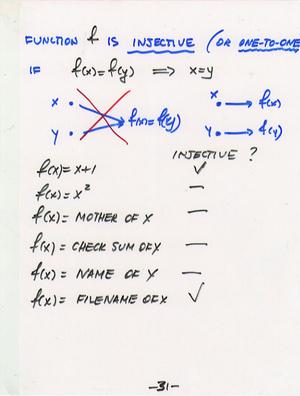 FUNCTION f IS INJECTIVE (OR ONE-TO-ONE
IF f(x)=f(y) ⟹ x=y
x • f(x)=f(y) x • → f(x)
y • y • → f(y)
INJECTIVE ?
f(x)= x+1 ✓
f(x)= x² —
f(x)= MOTHER OF X —
f(x)= CHECK SUM OF X —
f(x)= NAME OF X —
f(x)= FILENAME OF X ✓
-31-